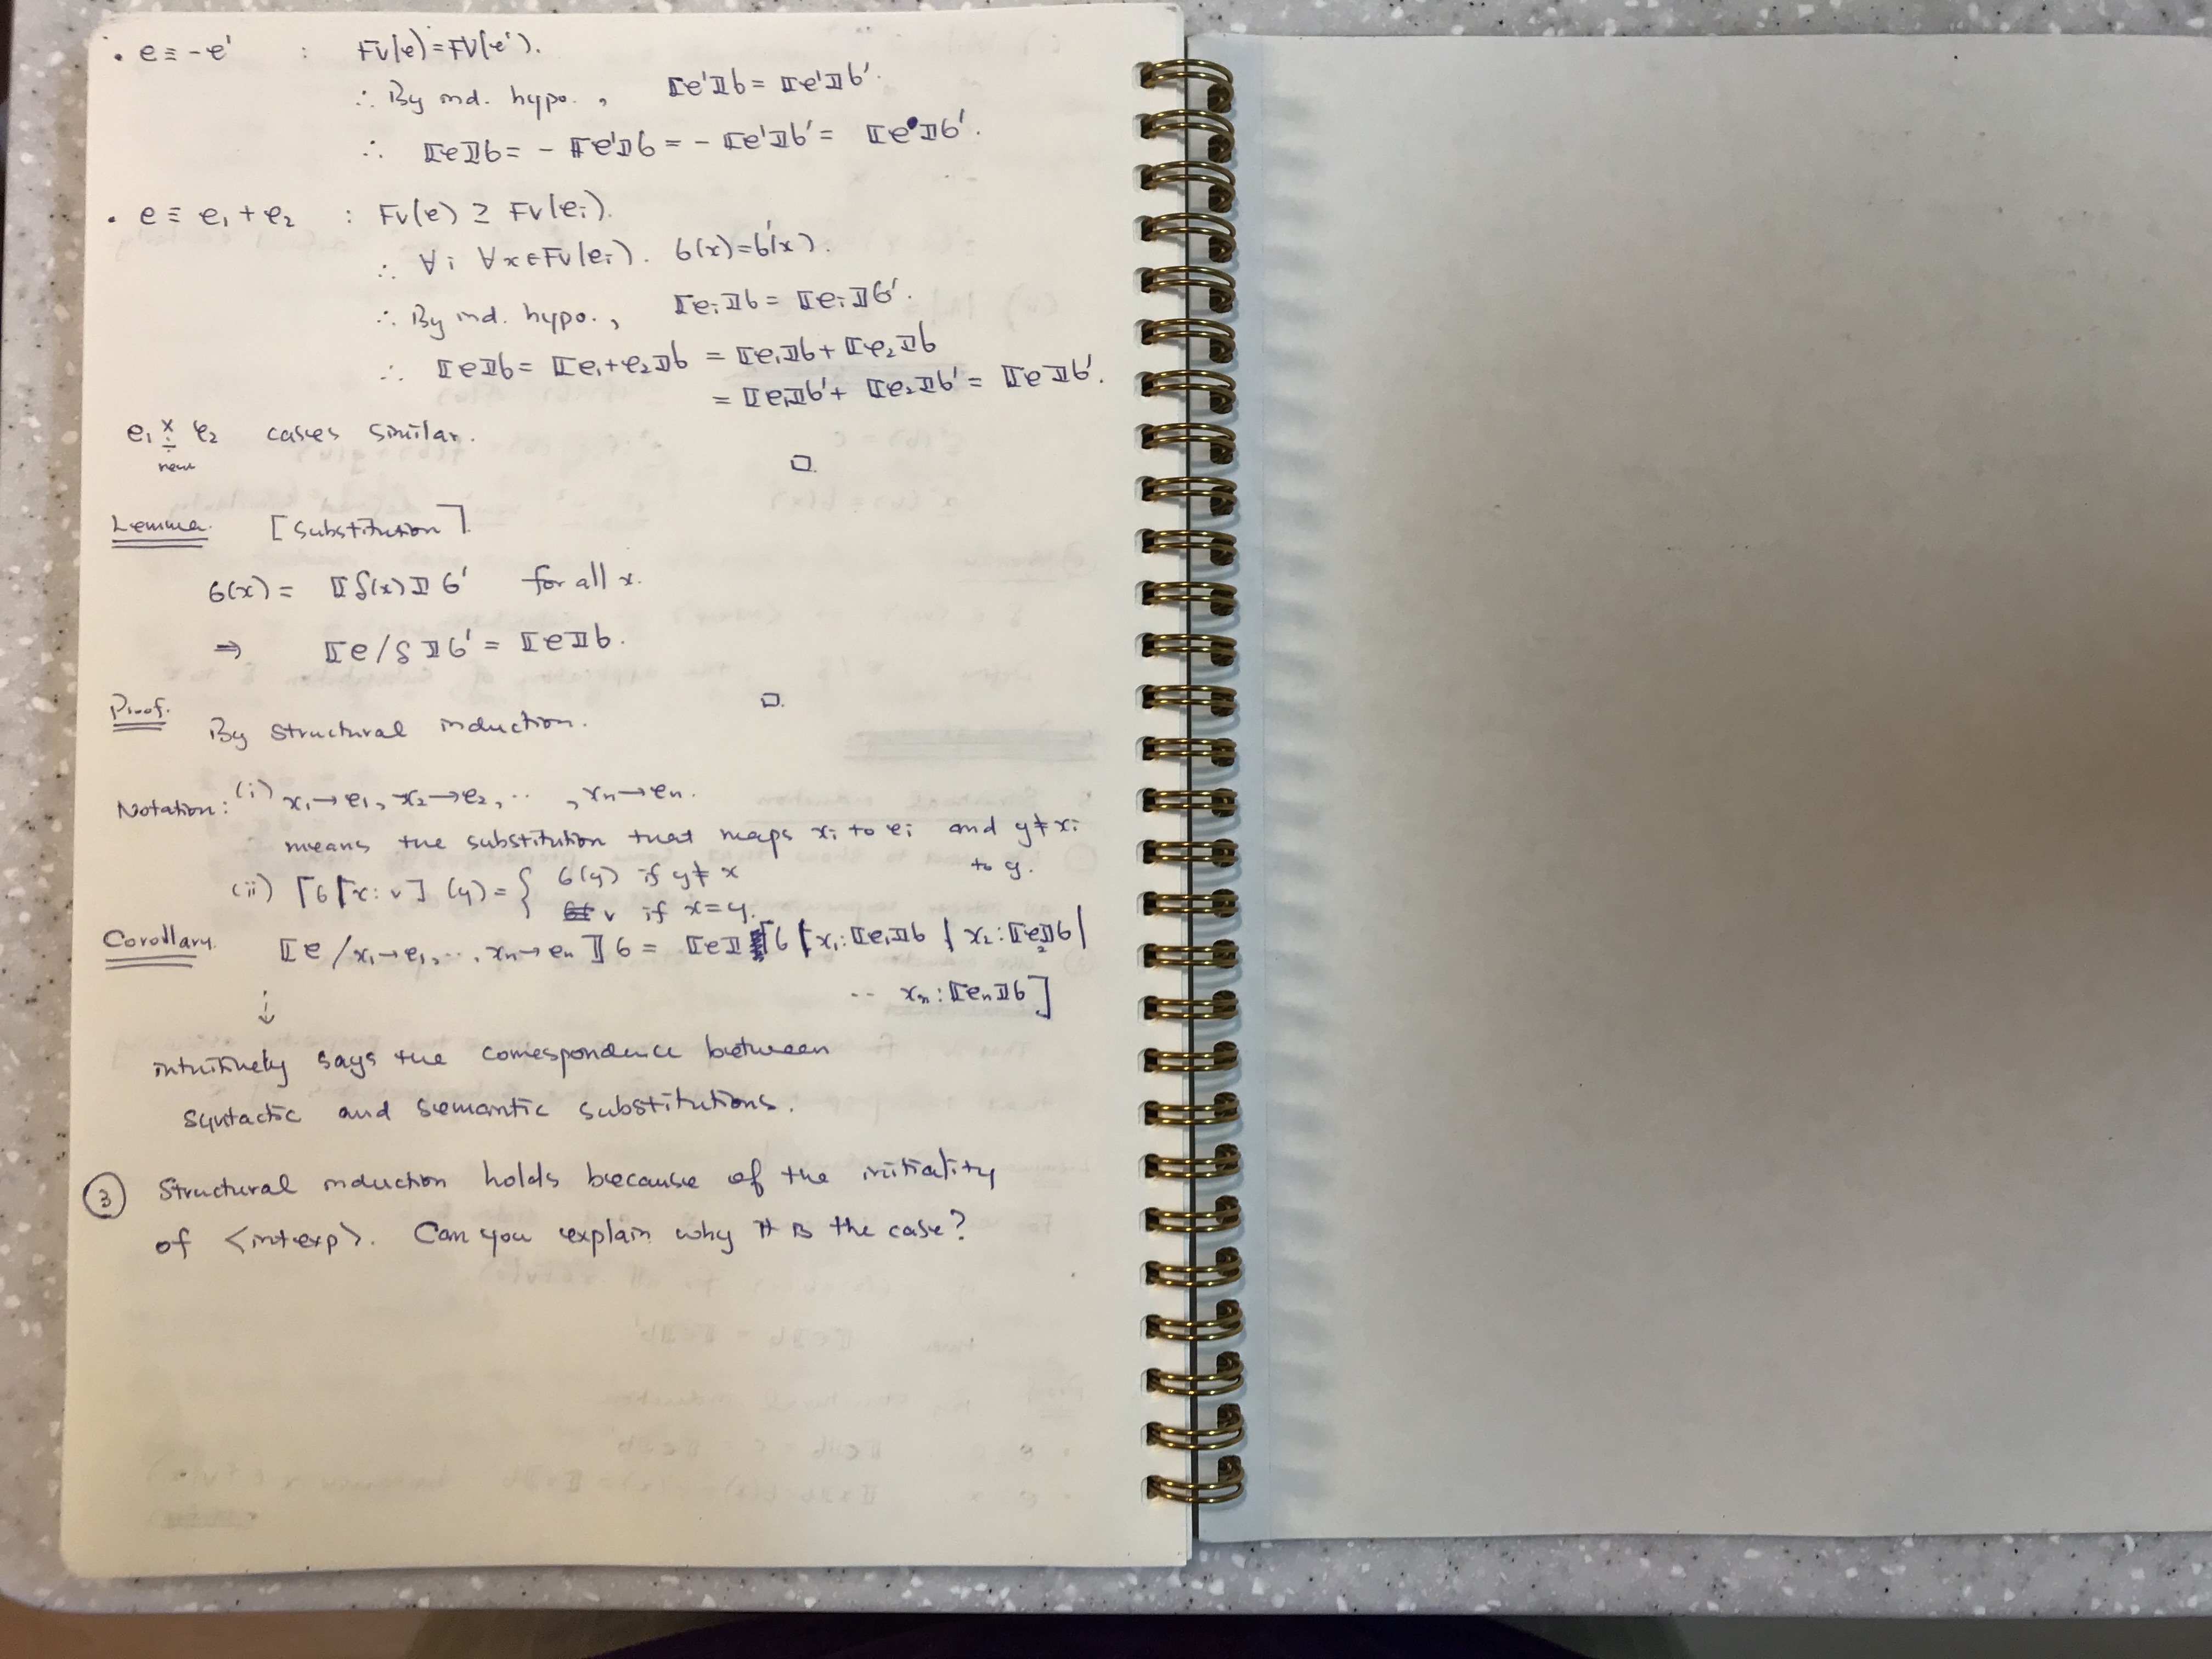 • e ≡ -e' : FV(e) = FV(e').
∴ By ind. hypo., ⟦e'⟧σ = ⟦e'⟧σ'.
∴ ⟦e⟧σ = - ⟦e'⟧σ = - ⟦e'⟧σ' = ⟦e⟧σ'.
• e ≡ e₁ + e₂ : FV(e) ⊇ FV(eᵢ).
∴ ∀i ∀x∈FV(eᵢ). σ(x)=σ'(x).
∴ By ind. hypo., ⟦eᵢ⟧σ = ⟦eᵢ⟧σ'.
∴ ⟦e⟧σ = ⟦e₁+e₂⟧σ = ⟦e₁⟧σ + ⟦e₂⟧σ
= ⟦e₁⟧σ' + ⟦e₂⟧σ' = ⟦e⟧σ'.
e₁ × e₂ cases similar.
÷
rem
□.
Lemma. [Substitution].
σ(x) = ⟦δ(x)⟧σ' for all x.
⇒ ⟦e/δ⟧σ' = ⟦e⟧σ.
Proof. □.
By structural induction.
Notation: (i) x₁→e₁, x₂→e₂, .. , xₙ→eₙ.
means the substitution that maps xᵢ to eᵢ and y≠xᵢ
to y.
(ii) [σ|x:v] (y) = { σ(y) if y≠x
v if x=y.
Corollary. ⟦e/x₁→e₁, .., xₙ→eₙ⟧σ = ⟦e⟧[σ | x₁:⟦e₁⟧σ | x₂:⟦e₂⟧σ |
.. xₙ:⟦eₙ⟧σ]
↓
intuitively says the correspondence between
syntactic and semantic substitutions.
③ Structural induction holds because of the initiality
of <intexp>. Can you explain why it is the case?